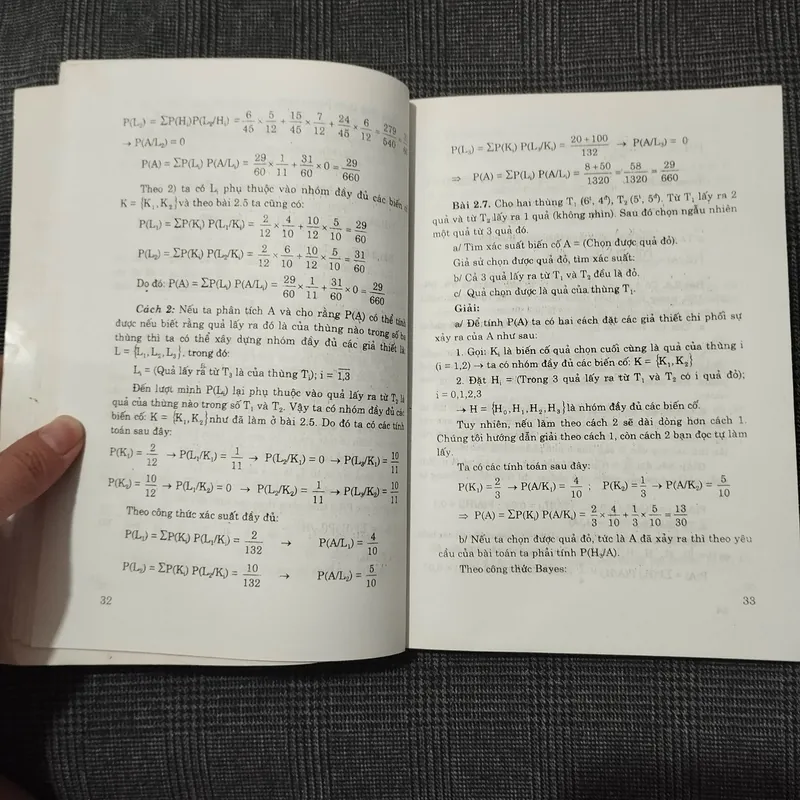 P(L₂) = ΣP(Hᵢ)P(L₂/Hᵢ) = 6/45 × 5/12 + 15/45 × 7/12 + 24/45 × 6/12 = 279/540 =
→ P(A/L₂) = 0
P(A) = ΣP(Lᵢ) P(A/Lᵢ) = 29/60 × 1/11 + 31/60 × 0 = 29/660
Theo 2) ta có Lᵢ phụ thuộc vào nhóm đầy đủ các biến cố
K = {K₁, K₂} và theo bài 2.5 ta cũng có:
P(L₁) = ΣP(Kᵢ) P(L₁/Kᵢ) = 2/12 × 4/10 + 10/12 × 5/10 = 29/60
P(L₂) = ΣP(Kᵢ) P(L₂/Kᵢ) = 2/12 × 6/10 + 10/12 × 5/10 = 31/60
Do đó: P(A) = ΣP(Lᵢ) P(A/Lᵢ) = 29/60 × 1/11 + 31/60 × 0 = 29/660
Cách 2: Nếu ta phân tích A và cho rằng P(A) có thể tính
được nếu biết rằng quả lấy ra đó là của thùng nào trong số ba
thùng thì ta có thể xây dựng nhóm đầy đủ các giả thiết là
L = {L₁, L₂, L₃}. trong đó:
Lᵢ = (Quả lấy ra từ T₃ là của thùng Tᵢ); i = 1,3
Đến lượt mình P(Lᵢ) lại phụ thuộc vào quả lấy ra từ T₂ là
quả của thùng nào trong số T₁ và T₂. Vậy ta có nhóm đầy đủ các
biến cố: K = {K₁, K₂} như đã làm ở bài 2.5. Do đó ta có các tính
toán sau đây:
P(K₁) = 2/12 → P(L₁/K₁) = 1/11 → P(L₂/K₁) = 0 → P(L₃/K₁) = 10/11
P(K₂) = 10/12 → P(L₁/K₂) = 0 → P(L₂/K₂) = 1/11 → P(L₃/K₂) = 10/11
Theo công thức xác suất đầy đủ:
P(L₁) = ΣP(Kᵢ) P(L₁/Kᵢ) = 2/132 → P(A/L₁) = 4/10
P(L₂) = ΣP(Kᵢ) P(L₂/Kᵢ) = 10/132 → P(A/L₂) = 5/10
32
P(L₃) = ΣP(Kᵢ) P(L₃/Kᵢ) = 20+100/132 → P(A/L₃) = 0
⇒ P(A) = ΣP(Lᵢ) P(A/Lᵢ) = 8+50/1320 = 58/1320 = 29/660
Bài 2.7. Cho hai thùng T₁ (6ᵗ, 4ᵈ), T₂ (5ᵗ, 5ᵈ). Từ T₁ lấy ra 2
quả và từ T₂ lấy ra 1 quả (không nhìn). Sau đó chọn ngẫu nhiên
một quả từ 3 quả đó.
a/ Tìm xác suất biến cố A = (Chọn được quả đỏ).
Giả sử chọn được quả đỏ, tìm xác suất:
b/ Cả 3 quả lấy ra từ T₁ và T₂ đều là đỏ.
c/ Quả chọn được là quả của thùng T₁.
Giải:
a/ Để tính P(A) ta có hai cách đặt các giả thiết chi phối sự
xảy ra của A như sau:
1. Gọi: Kᵢ là biến cố quả chọn cuối cùng là quả của thùng i
(i = 1,2) → ta có nhóm đầy đủ các biến cố: K = {K₁, K₂}
2. Đặt Hᵢ = (Trong 3 quả lấy ra từ T₁ và T₂ có i quả đỏ);
i = 0,1,2,3
→ H = {H₀, H₁, H₂, H₃} là nhóm đầy đủ các biến cố.
Tuy nhiên, nếu làm theo cách 2 sẽ dài dòng hơn cách 1.
Chúng tôi hướng dẫn giải theo cách 1, còn cách 2 bạn đọc tự làm
lấy.
Ta có các tính toán sau đây:
P(K₁) = 2/3 → P(A/K₁) = 4/10 ; P(K₂) = 1/3 → P(A/K₂) = 5/10
⇒ P(A) = ΣP(Kᵢ) P(A/Kᵢ) = 2/3 × 4/10 + 1/3 × 5/10 = 13/30
b/ Nếu ta chọn được quả đỏ, tức là A đã xảy ra thì theo yêu
cầu của bài toán ta phải tính P(H₃/A).
Theo công thức Bayes:
33